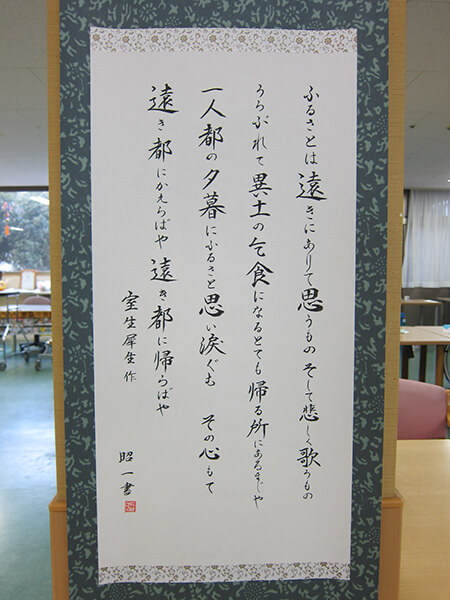 ふるさとは遠きにありて思うもの そして悲しく歌うもの
うらぶれて異土の乞食になるとても帰る所にあるまじや
一人都の夕暮にふるさと思い涙ぐむ その心もて
遠き都にかえらばや 遠き都に帰らばや
室生犀星作
昭一書